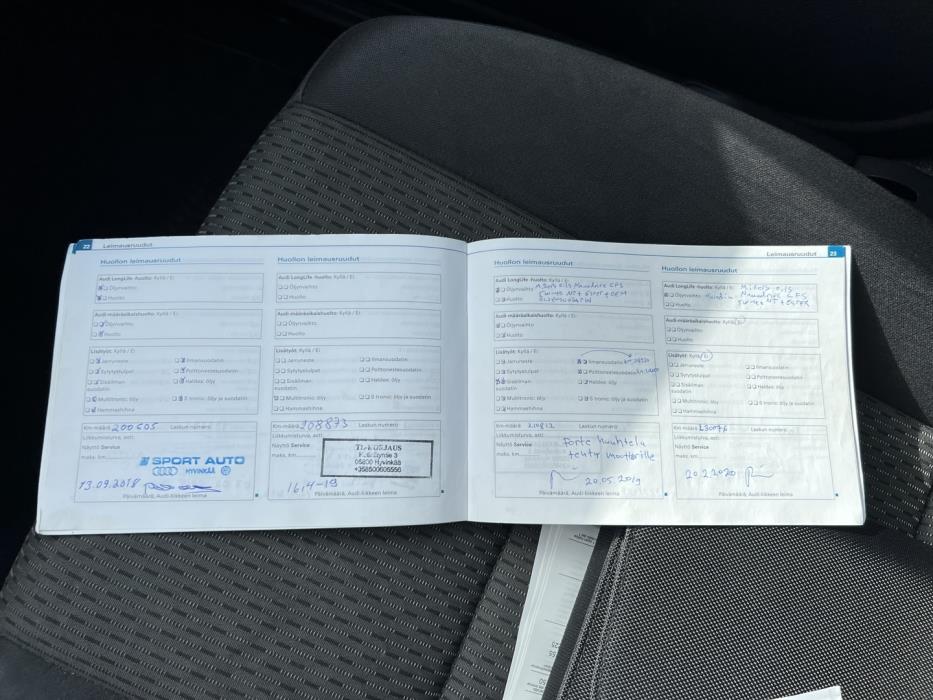 22 Leimausruudut
Huollon leimausruudut
Audi LongLife -huolto: Kyllä / Ei
Öljynvaihto
Huolto
Audi-määräaikaishuolto: Kyllä / Ei
Öljynvaihto
Huolto
Lisätyöt: Kyllä / Ei
Jarruneste
Ilmansuodatin
Sytytystulpat
Polttoainesuodatin
Sisäilman-
suodatin
Haldex: öljy
Multitronic: öljy
S tronic: öljy ja suodatin
Hammashihna
Km-määrä 200605 Laskun numero
Liikkumisturva, asti
Näyttö Service
maks. km
SPORT AUTO
HYVINKÄÄ
13.09.2018
Päivämäärä, Audi-liikkeen leima
Huollon leimausruudut
Audi LongLife -huolto: Kyllä / Ei
Öljynvaihto
Huolto
Audi-määräaikaishuolto: Kyllä / Ei
Öljynvaihto
Huolto
Lisätyöt: Kyllä / Ei
Jarruneste
Ilmansuodatin
Sytytystulpat
Polttoainesuodatin
Sisäilman-
suodatin
Haldex: öljy
Multitronic: öljy
S tronic: öljy ja suodatin
Hammashihna
Km-määrä 208873 Laskun numero
Liikkumisturva, asti
Näyttö Service
maks. km
05800 Hyvinkää
16.4-19
Päivämäärä, Audi-liikkeen leima
Leimausruudut 23
Huollon leimausruudut
Audi LongLife -huolto: Kyllä / Ei
Öljynvaihto
Huolto
Audi-määräaikaishuolto: Kyllä / Ei
Öljynvaihto
Huolto
Lisätyöt: Kyllä / Ei
Jarruneste
Ilmansuodatin
Sytytystulpat
Polttoainesuodatin
Sisäilman-
suodatin
Haldex: öljy
Multitronic: öljy
S tronic: öljy ja suodatin
Hammashihna
Km-määrä Laskun numero
Liikkumisturva, asti
Näyttö Service Forte huuhtelu
maks. km tehty moottorille
20.05.2019
Päivämäärä, Audi-liikkeen leima
Huollon leimausruudut
Audi LongLife -huolto: Kyllä / Ei
Öljynvaihto
Huolto
Audi-määräaikaishuolto: Kyllä / Ei
Öljynvaihto
Huolto
Lisätyöt: Kyllä / Ei
Jarruneste
Ilmansuodatin
Sytytystulpat
Polttoainesuodatin
Sisäilman-
suodatin
Haldex: öljy
Multitronic: öljy
S tronic: öljy ja suodatin
Hammashihna
Km-määrä Laskun numero
Liikkumisturva, asti
Näyttö Service
maks. km
20.2.2020
Päivämäärä, Audi-liikkeen leima